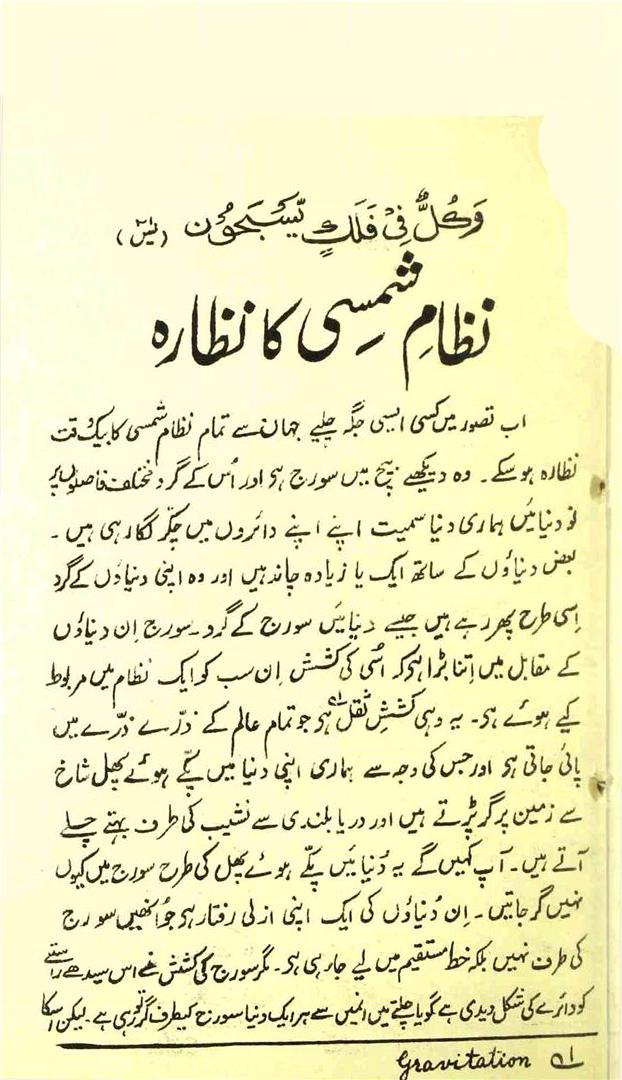 وَكُلٌّ فِىْ فَلَكٍ يَّسْبَحُوْن (یٰسٓ)
نظامِ شمسی کا نظارہ
اب تصور میں کسی ایسی جگہ چلیے جہان سے تمام نظام شمسی کا بیک وقت
نظارہ ہو سکے۔ وہ دیکھیے بیچ میں سورج ہی اور اُس کے گرد مختلف فاصلوں پر
نو دنیائیں ہماری دنیا سمیت اپنے اپنے دائروں میں چکّر لگا رہی ہیں۔
بعض دنیاؤں کے ساتھ ایک یا زیادہ چاند ہیں اور وہ اپنی دنیاؤں کے گرد
اِسی طرح پھر رہے ہیں جیسے دنیائیں سورج کے گرد۔ سورج اِن دنیاؤں
کے مقابل میں اِتنا بڑا ہی کہ اُسی کی کشش اِن سب کو ایک نظام میں مربوط
کیے ہوئے ہی۔ یہ وہی کششِ ثقل ہی جو تمام عالم کے ذرّے ذرّے میں
پائی جاتی ہی اور جس کی وجہ سے ہماری اپنی دنیا میں پکّے ہوئے پھل شاخ
سے زمین پر گر پڑتے ہیں اور دریا بلندی سے نشیب کی طرف بہتے چلے
آتے ہیں۔ آپ کہیں گے یہ دُنیائیں پکّے ہوئے پھل کی طرح سورج میں کیوں
نہیں گر جاتیں۔ اِن دُنیاؤں کی ایک اپنی ازلی رفتار ہی جو اُنھیں سورج
کی طرف نہیں بلکہ خط مستقیم میں لیے جا رہی ہی۔ مگر سورج کی کشش نے اس سیدھے راستے
کو دائرے کی شکل دیدی ہے گویا چلتے میں انمیں سے ہر ایک دنیا سورج کیطرف گر تو رہی ہے۔ لیکن اسکا
Gravitation ۱؎